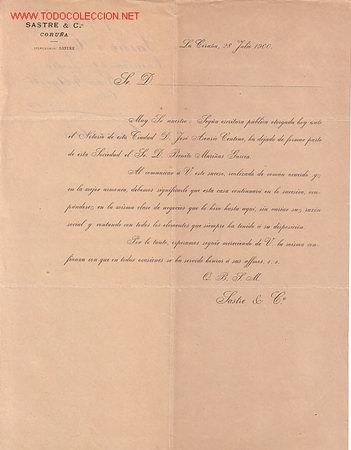 www.TODOCOLECCION.NET
SASTRE & Cª
CORUÑA
SASTRE
La Coruña, 28 Julio 1900.
Sr. D.
Muy Sr. nuestro: Según escritura pública otorgada hoy ante
el Notario de esta Ciudad D. José Asensio Centeno, ha dejado de formar parte
de esta Sociedad el Sr. D. Benito Mariñas García.
Al comunicar á V. este suceso, realizado de común acuerdo y
en la mejor armonía, debemos significarle que esta casa continuará en lo sucesivo,
en la misma clase de negocios que lo hizo hasta aquí, sin variar su razón
social y contando con todos los elementos que siempre ha tenido á su disposición.
Por lo tanto, esperamos seguir mereciendo de V. la misma con-
fianza con que en todas ocasiones se ha servido honrar á sus affmos. s. s.
Q. B. S. M.
Sastre & Cª